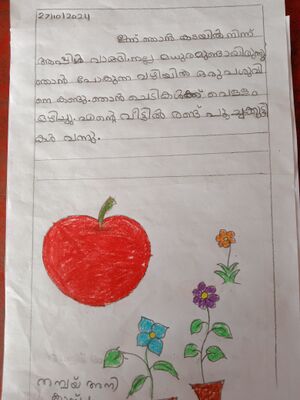 27/10/2024
ഇന്ന് ഞാൻ കടയിൽ നിന്ന്
ആപ്പിൾ വാങ്ങി.നല്ല മധുരമുണ്ടായിരുന്നു
ഞാൻ പോകുന്ന വഴിയിൽ ഒരു പശുവി
നെ കണ്ടു.ഞാൻ ചെടികൾക്ക് വെള്ളം
ഒഴിച്ചു.എന്റെ വീട്ടിൽ രണ്ട് പൂച്ചക്കുട്ടി
കൾ വന്നു.
തന്മയ് അനി